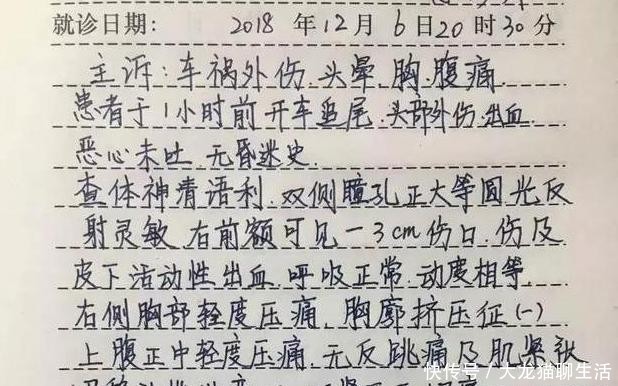 就诊日期: 2018 年 12 月 6 日 20 时 30 分
主诉:车祸外伤.头晕.胸.腹痛
患者于1小时前开车追尾.头部外伤.出血
恶心未吐.无昏迷史.
查体神清语利.双侧瞳孔正大等圆光反
射灵敏.右前额可见一3cm伤口.伤及
皮下活动性出血.呼吸正常.动度相等.
右侧胸部轻度压痛.胸廓挤压征(一)
上腹正中轻度压痛.无反跳痛及肌紧张
快传号/大龙猫聊生活